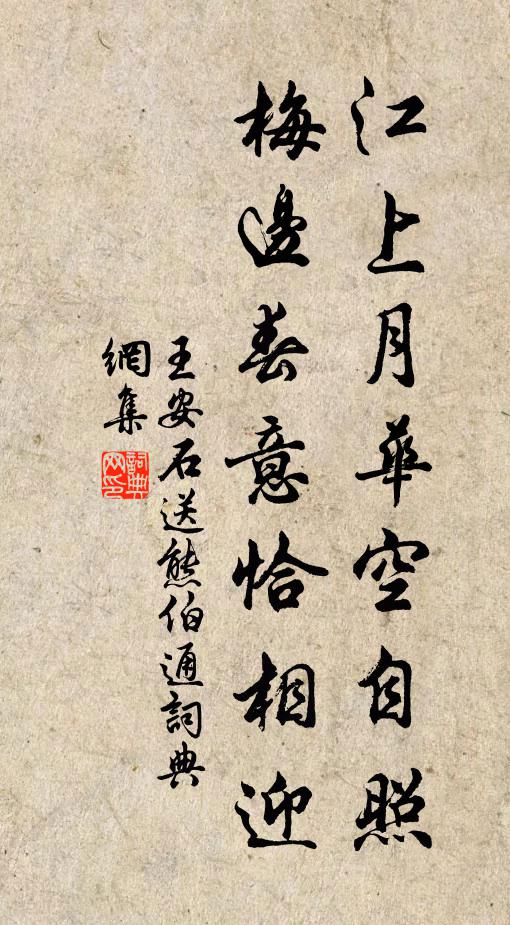 江上月華空自照
梅邊春意恰相迎
王安石送熊伯通詞典
網集
詞典網印